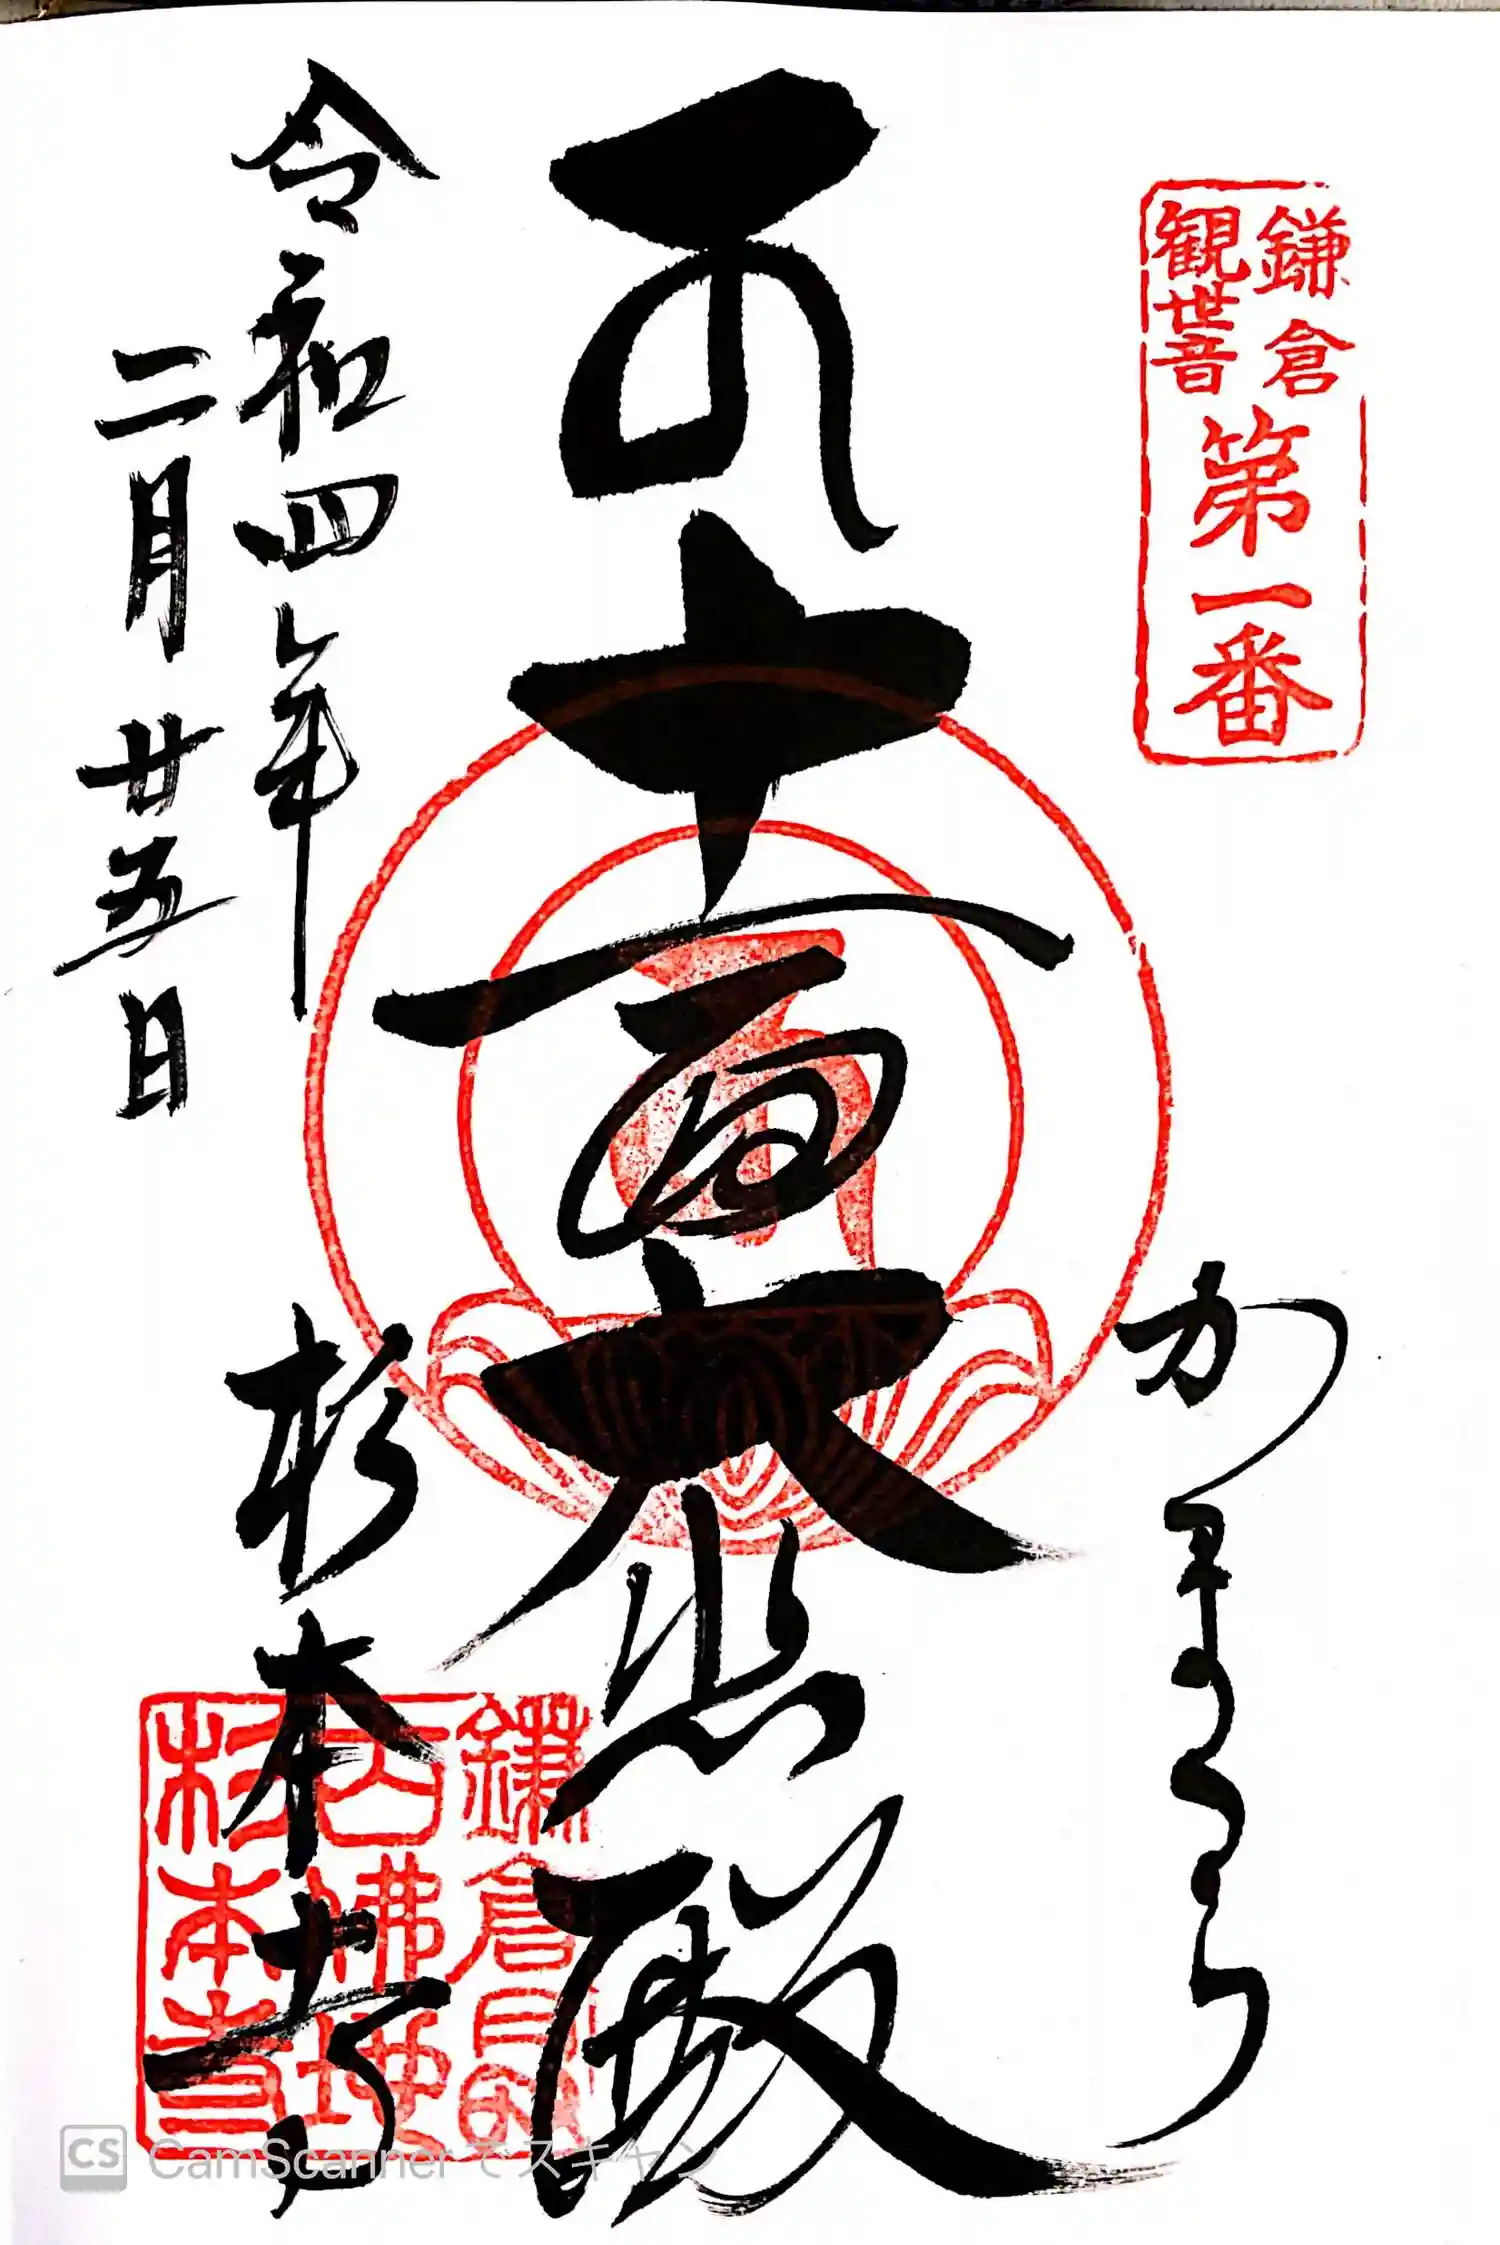 鎌倉
観世音
第一番
かまくら
十一面大悲殿
令和四年
二月廿五日
杉本寺
鎌倉最
古佛地
杉本寺
CS CamScannerでスキャン